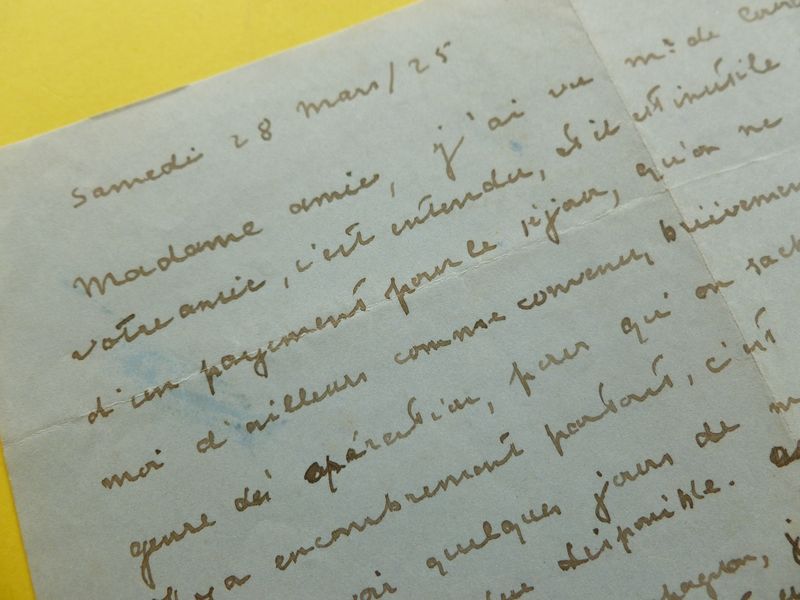 Samedi 28 mars/25
Madame amie, j'ai vu mr de
votre amie, c'est entendu, et il est inutile
d'un payement pour le séjour, qu'on ne
moi d'ailleurs comme convenu, brièvement
genre des opération, parce qu'on sach
a encombrement partout, c'est
quelques jours de
disponible.